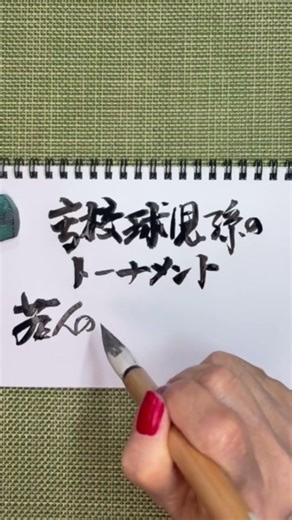 高校球児孫の
トーナメント
若人の